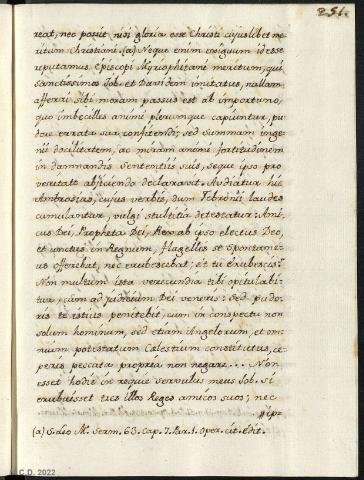 251.
reat, nec possit nisi gloria esse Christi cujuslibet me-
ritum Christiani. (a) Neque enim exiguum id esse
reputamus Episcopi Myriophitani meritum, qui
sanctissimos Job, et Davidem imitatus, nullam
afferri sibi moram passus est ab importuno,
quo imbecilles animi plerumque capiuntur, pu-
dore errata sua confitendi; sed summam inge-
nii docilitatem, ac miram animi fortitudinem
in damnandis sententiis suis, seque ipso pro
veritate abjiciendo declaravit. Audiatur hic
Ambrosius, cujus verbis, dum Febronii laudes
cumulantur, vulgi stultitia detestatur: Ami-
cus Dei, Propheta Dei, Rex ab ipso electus Deo,
et unctus in Regnum, flagellis se spontane-
us offerebat, nec erubescebat; et tu erubescis?
Non multum ista verecundia tibi opitulabi-
tur, cum ad judicium Dei veneris: sed pudo-
ris te istius penitebit, cum in conspectu non
solum hominum, sed etiam Angelorum, et om-
nium potestatum Cælestium constitutus, ce-
peris peccata propria non negare... Non
esset hodie in reque servulus meus Job, si
erubuisset tres illos Reges amicos suos; nec
ip-
(a) S. Leo M. Serm. 63. Cap. 7. Par. 1. Oper. cit. Edit.
C.D. 2022